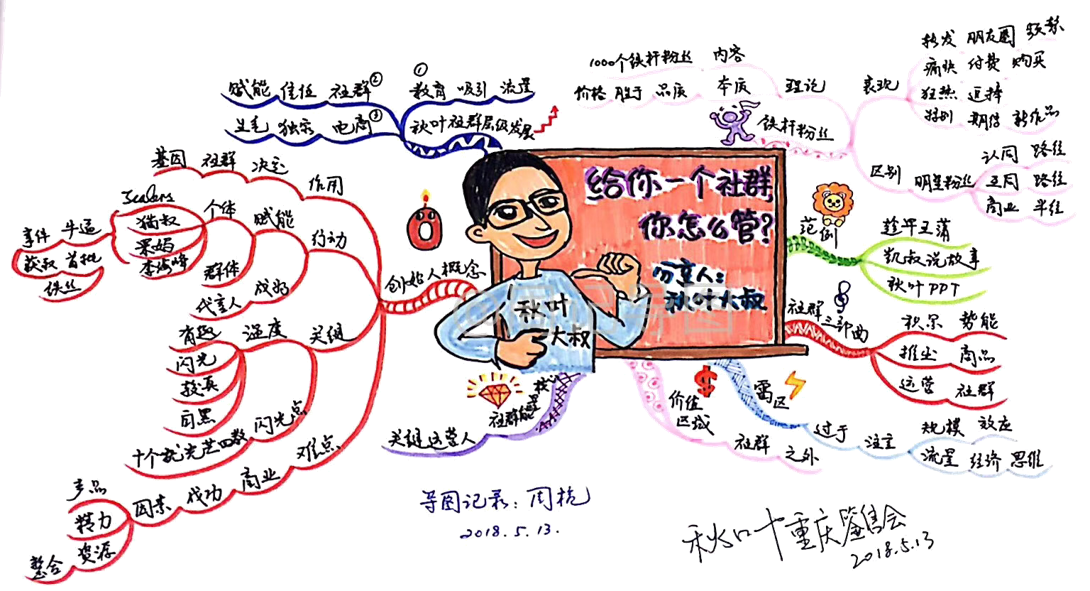 给你一个社群
你怎么管?
分享人:
秋叶大叔
秋叶
大叔
铁杆粉丝
理论
1000个铁杆粉丝 内容
价格 胜于 品质 本质
表现
转发 朋友圈
痛快 付费 购买
狂热 追捧
特别 期待 新作品
区别
明星粉丝
认同 路径
互同 路径
商业 半径
范例
趁早玉蒲
凯叔说故事
秋叶PPT
社群
三部曲
积累 势能
推出 商品
运营 社群
雷区
过于 注重
规模 效应
流量 经济 思维
$
价值
区域
社群 之外
社群能
关键运营人
创始人概念
作用
基因 社群 决定
行动
赋能
个体
猫叔
事件 牛逼
获取 首批
铁丝
群体
代言人 成为
关键
温度
有趣
闪光
较真
自黑
闪光点
难点
商业
成功
因素
产品
精力
资源
整合
秋叶社群层级发展
① 教育 吸引 流量
赋能 信任 社群②
独家 电商③
导图记录:周杭
2018.5.13.
秋叶重庆签售会
2018.5.13